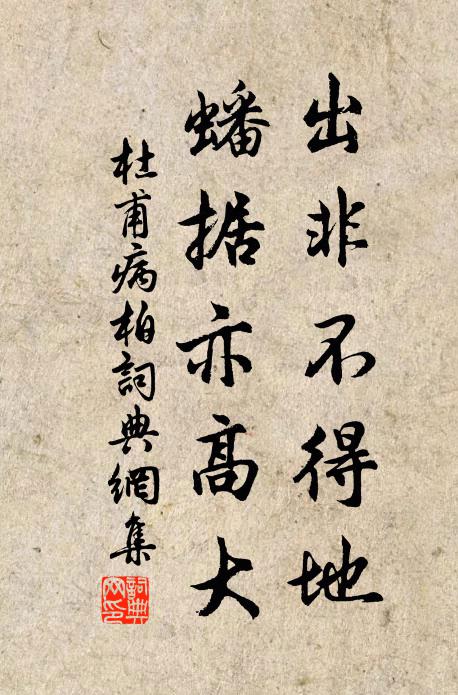 出非不得地
蟠据亦高大
杜甫病柏詞典網集
詞典网印